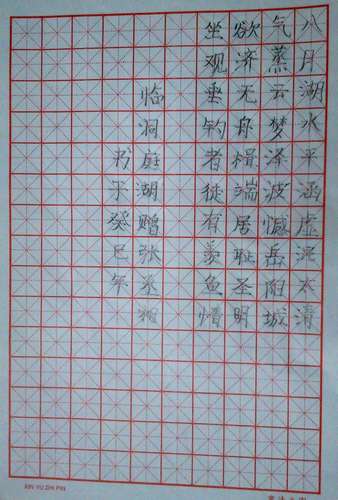 八月湖水平涵虚混太清
气蒸云梦泽波憾岳阳城
欲济无舟楫端居耻圣明
坐观垂钓者徒有羡鱼情
临洞庭湖赠张丞相
书于癸巳年
XIN YU ZHI PIN